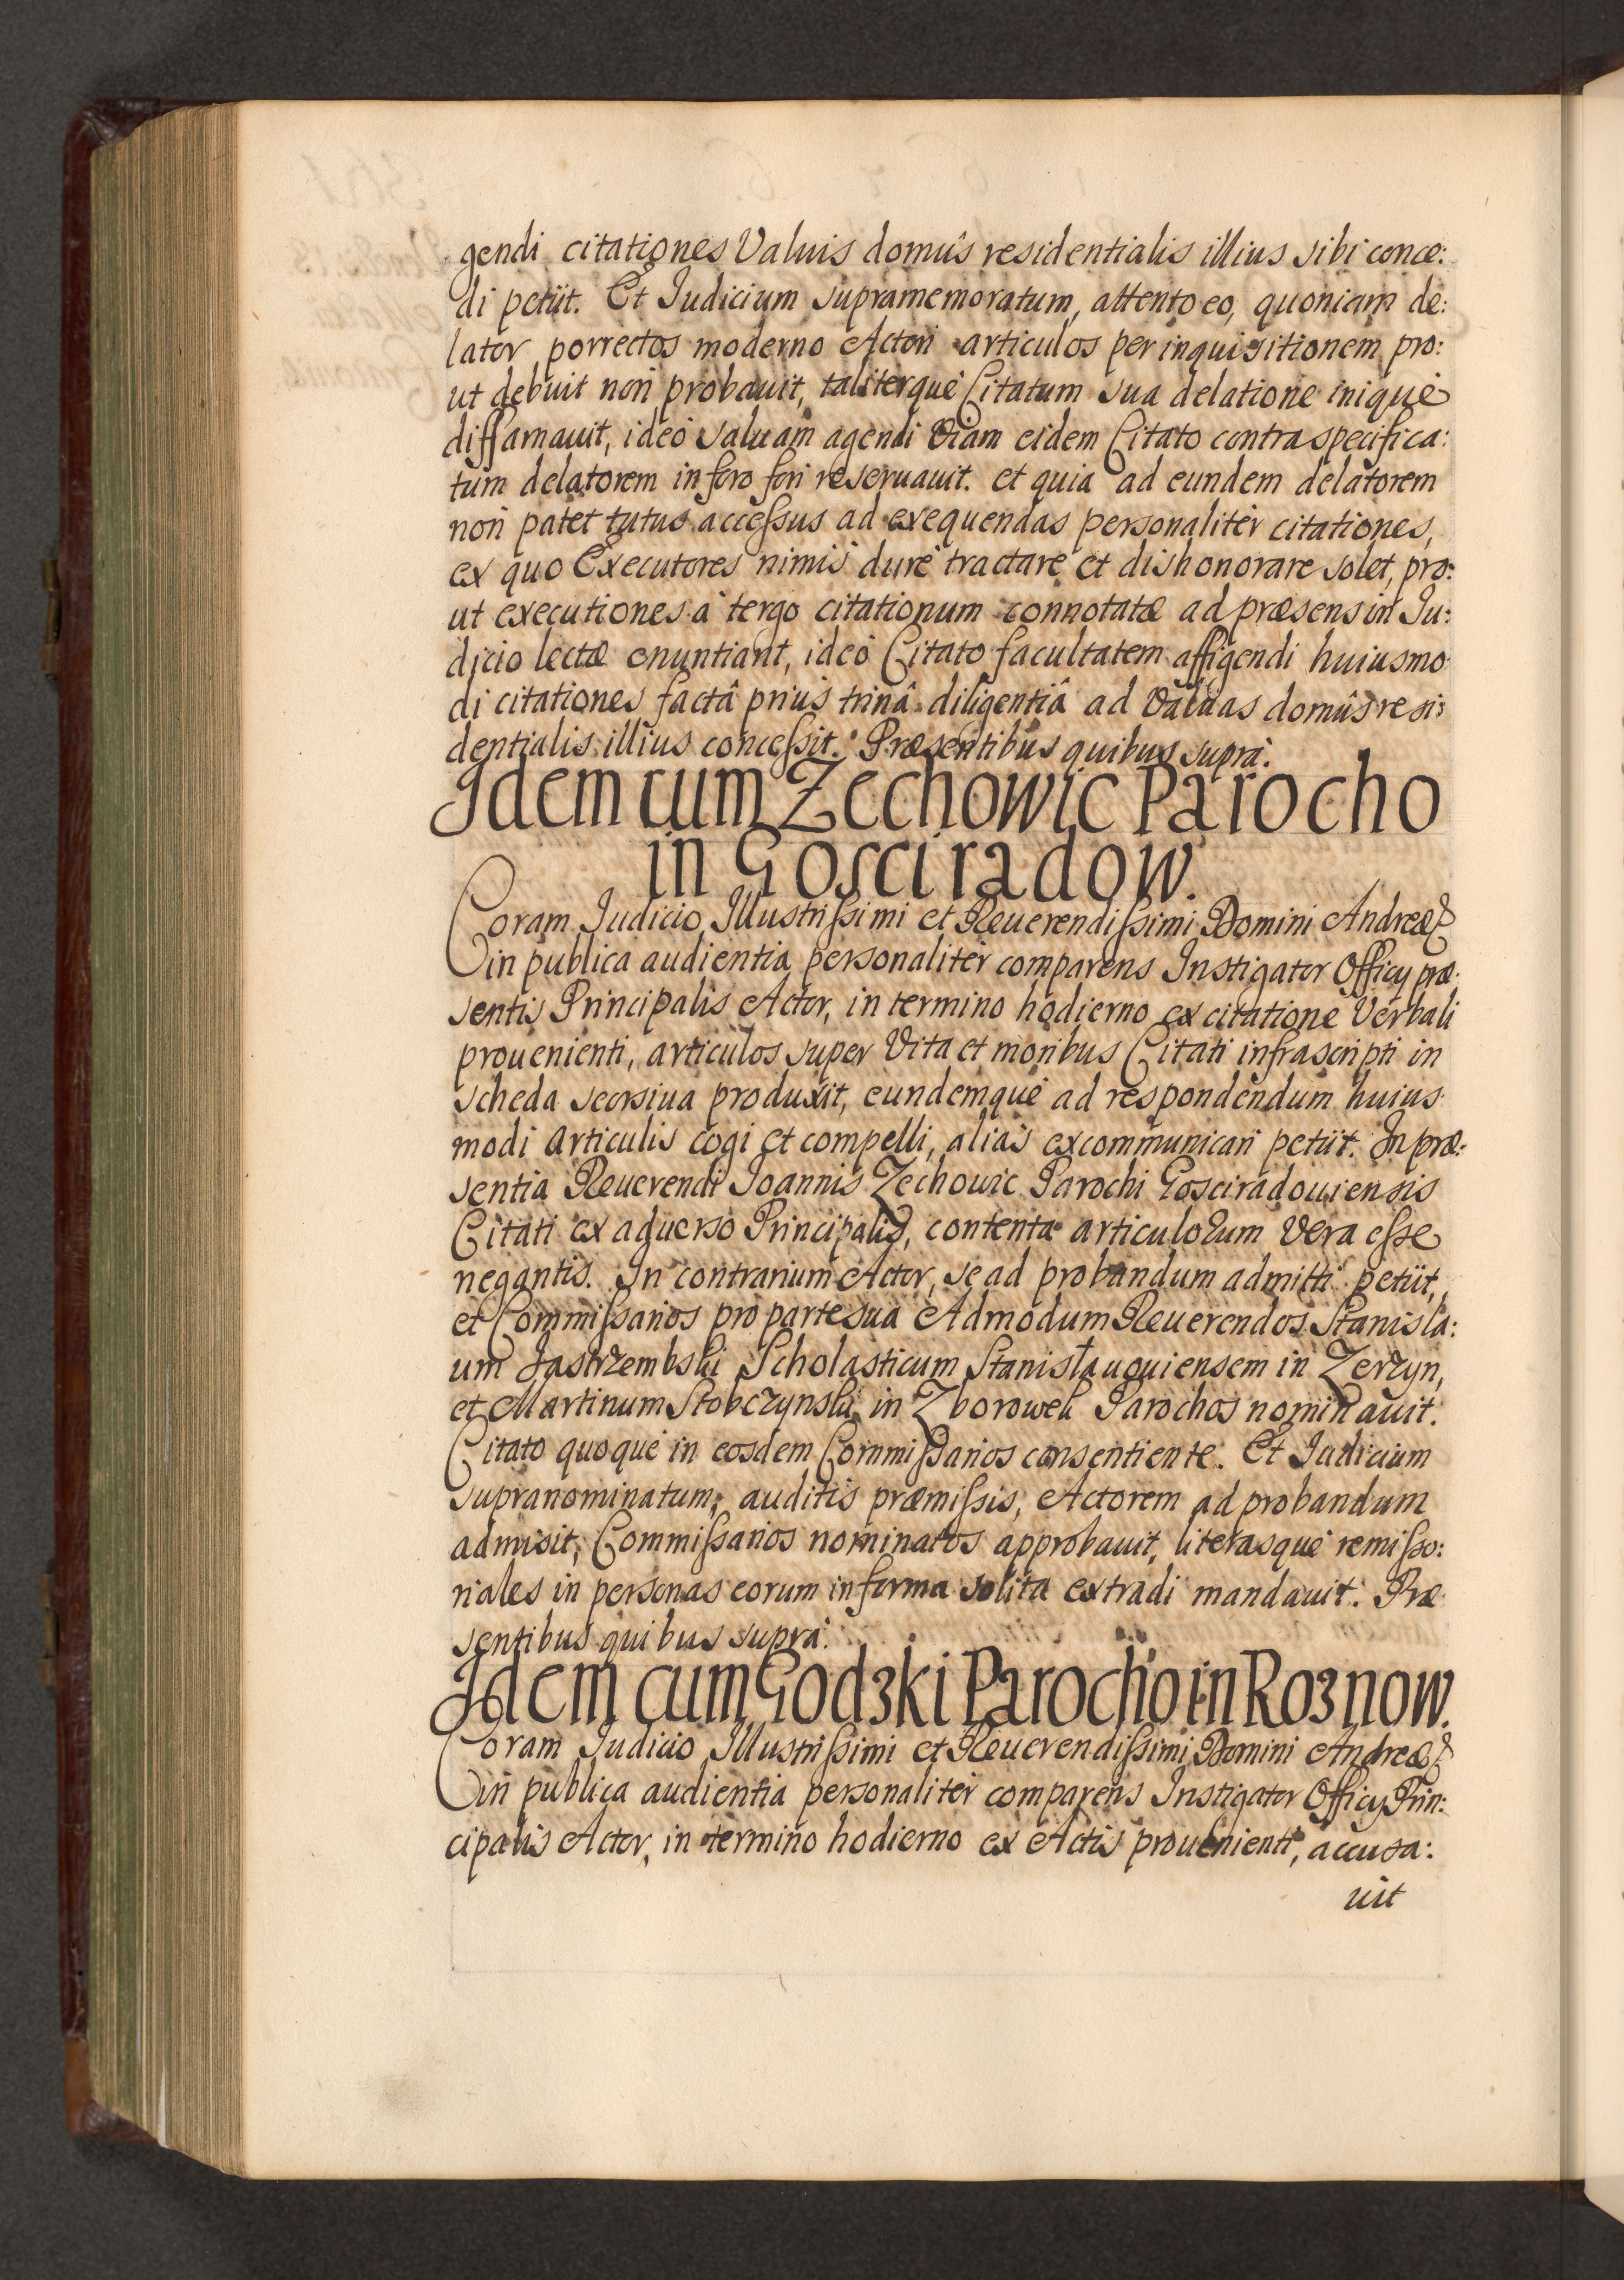 gendi citationes Valuis domûs residentialis illius sibi conce:
di petijt. Et Iudicium supramemoratum, attento eo, quoniam de:
lator porrectos moderno Actori articulos per inquisitionem pro:
ut debuit non probauit, talitèrquè Citatum sua delatione iniquè
diffamauit, ideò saluam agendi viam eidem Citato contra specifica:
tum delatorem in foro fori reseruauit. et quia ad eundem delatorem
non patet tutus accessus ad exequendas personalitèr citationes,
ex quo Executores nimis durè tractare et dishonorare solet, pro:
ut executiones à tergo citationum connotatæ ad præsens in Iu:
dicio lectæ enuntiant, ideò Citato facultatem affigendi huiusmo
di citationes factâ priùs trinâ diligentiâ ad Valuas domûs resi:
dentialis illius concessit. Præsentibus quibus suprà.
Idem cum Zechowic Parocho
in Gosciradow.
Coram Iudicio Illustrissimi et Reuerendissimi Domini Andreæ &
in publica audientia personalitèr comparens Instigator Officÿ præ:
sentis Principalis Actor, in termino hodierno ex citatione Verbali
prouenienti, articulos super Vita et moribus Citati infrascripti in
scheda seorsiua produxit, eundemquè ad respondendum huius
modi articulis cogi et compelli, aliàs excommunicari petijt. In præ:
sentia Reuerendi Ioannis Zechowic Parochi Gosciradouiensis
Citati ex aduerso Principalis, contenta articulorum Vera esse
negantis. In contrarium Actor, se ad probandum admitti petijt,
et Commissarios pro parte sua Admodum Reuerendos Stanisla:
um Jastrzembski Scholasticum Stanisłauouiensem in Zerzyn,
et Martinum Stobczynski in Zborowek Parochos nominauit.
Citato quoquè in eosdem Commissarios consentiente. Et Iudicium
supranominatum, auditis præmissis, Actorem ad probandum
admisit, Commissarios nominatos approbauit, literasquè remisso:
riales in personas eorum in forma solita extradi mandauit. Præ
sentibus quibus suprà.
Idem cum Godzki Parocho in Roznow.
Coram Iudicio Illustrissimi et Reuerendissimi Domini Andreæ &
in publica audientia personalitèr comparens Instigator Officÿ Prin:
cipalis Actor, in termino hodierno ex Actis prouenienti, accusa:
uit